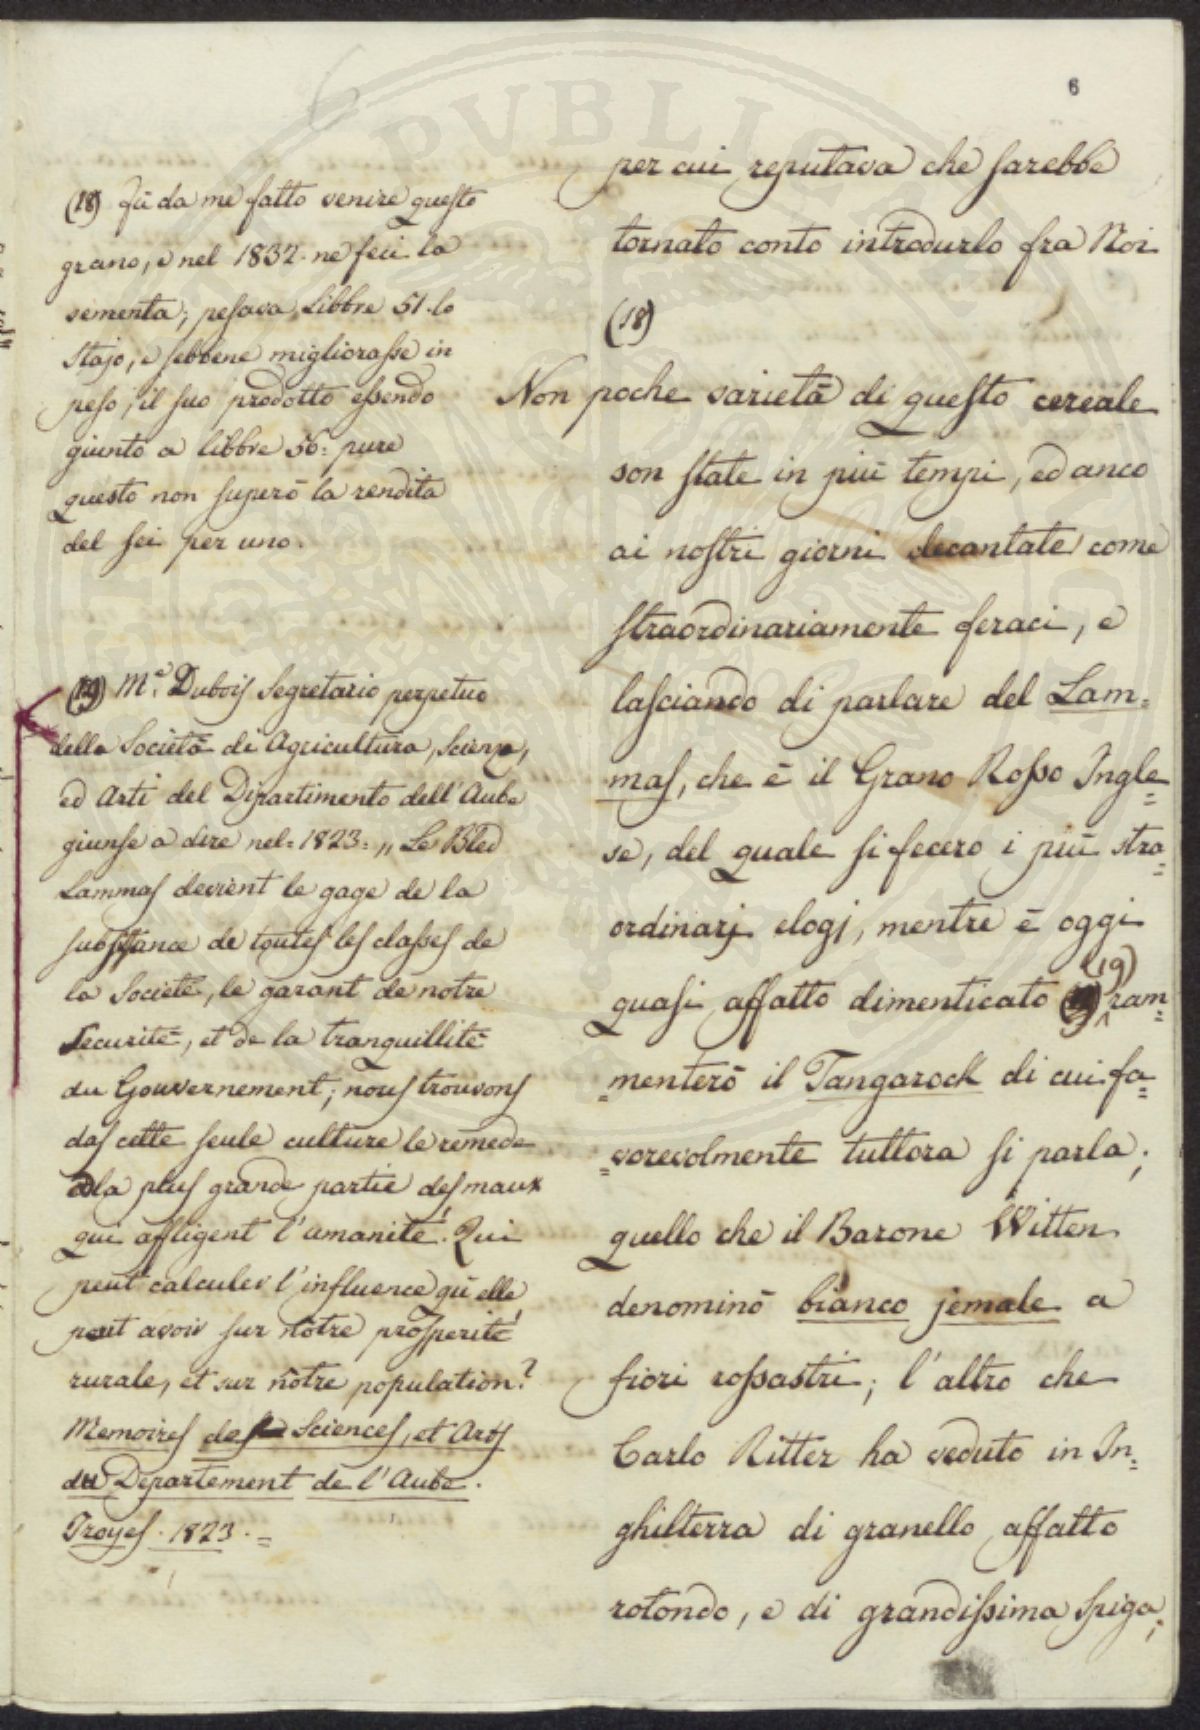 6
per cui reputava che sarebbe
tornato conto introdurlo fra Noi
(18)
Non poche varietà di questo cereale
son state in più tempi, ed anco
ai nostri giorni decantate come
straordinariamente feraci, e
lasciando di parlare del Lam=
mas, che è il Grano Rosso Ingle
=se, del quale si fecero i più stra
=ordinarj elogj, mentre è oggi
quasi affatto dimenticato (19) ram
=menterò il Tangarock di cui fa
=vorevolmente tuttora si parla;
quello che il Barone Witten
denominò bianco jemale a
fiori rossastri; l'altro che
Carlo Ritter ha veduto in In=
ghilterra di granello affatto
rotondo, e di grandissima spiga;
(18) Fù da me fatto venire questo
grano, e nel 1832. ne feci la
sementa; pesava Libbre 51. lo
Stajo, e sebbene migliorasse in
peso, il suo prodotto essendo
giunto a libbre 56: pure
questo non superò la rendita
del sei per uno.
(19) M.e Dubois Segretario perpetuo
della Società di Agricultura, Scienze,
ed Arti del Dipartimento dell'Aube
giunse a dire nel= 1823= „ Le Bled
Lammas devient le gage de la
substance de toutes les classes de
la Societé, le garant de notre
securité, et de la tranquillité
du Gouvernement; nous trouvons
das cette seule culture le remede
a la plus grande partie des maux
qui affligent l'umanité. Qui
peut calculer l'influence qu'elle
peut avoir sur nôtre prosperité
rurale, et sur nôtre population?
Memoires des Sciences, et Arts
du Departement de l'Aube.
Troyes. 1823. =
PVBLIC